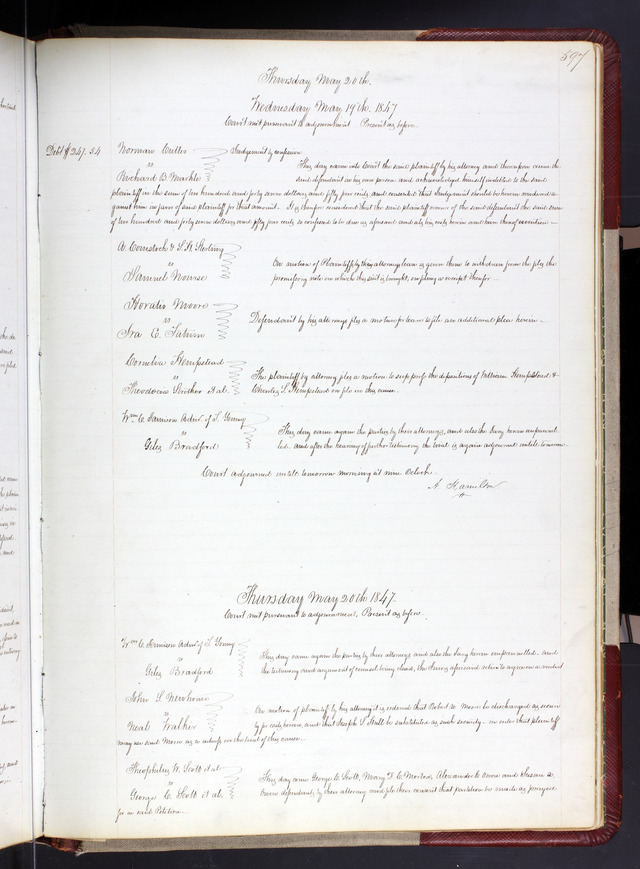 597
Thursday May 20th.
Wednesday May 19th 1847
Court met pursuant to adjournment Present as before
Debt $247.54
Norman Cutter
vs
Richard B. Markle
Judgement by confession
This day came into Court the said plaintiff by his attorney and thereupon came the
said defendant in his own person and acknowledged himself indebted to the said
plaintiff in the sum of two hundred and forty seven dollars and fifty four cents, and consented that Judgement should be herein rendered a-
gainst him in favor of said plaintiff for that amount. It is therefore considered that the said plaintiff recover of the said defendant the said sum
of two hundred and forty seven dollars and fifty four cents so confessed to be due as aforesaid and also his costs herein and have thereof execution
A. Comstock & S. H. Sterling
vs
Samuel
On motion of Plaintiffs by their attorney leave is given them to withdraw from the files the
promissory note on which this suit is brought, on filing a receipt therefor.
Horatio Moore
vs
Ira C.
Defendant by his attorney files a motion for leave to file an additional plea herein
Cornelia Hempstead
vs
Theodocia et al.
The plaintiff by attorney files a motion to suppress the depositions of William Hempstead &
Charles S. Hempstead on file in this cause.
Wm. C. Jamison Admr. of T. Gonny
vs
Giles Bradford
This day came again the parties by their attorneys, and also the Jury herein empannel-
led. and after the hearing of further testimony the trial is again adjourned untill tomorrow
Court adjourned untill tomorrow morning at nine Oclock.
A. Hamilton
Thursday May 20th 1847.
Court met pursuant to adjournment, Present as before.
Wm. C. Jamison Admr. of T. Gonny
vs
Giles Bradford
This day came again the parties by their attorneys and also the Jury herein empannelled. and
the testimony and argument of counsel being closed, the Jurors aforesaid retire to agree on a verdict
John S.
vs
Neal Walker
On motion of plaintiff by his attorney it is ordered that Robert W. Moore be discharged as security
for costs herein, and that Joseph S. Hull be substituted as such security in order that plaintiff
may use said Moore as a witness on the trial of this cause.
Theophilus W. Scott et al
vs
George C. Scott et al.
This day came George C. Scott, Mary Alexander C. Owen and Susan
Owen defendants, by their attorney and file their consent that partition be made as prayed
for in said Petition.